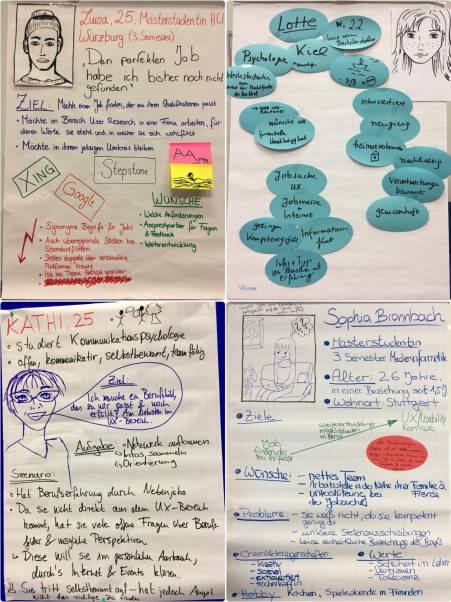 Luisa, 25, Masterstudentin HCI
Würzburg (3 Semester)
"Den perfekten Job
habe ich bisher noch nicht
gefunden"
ZIEL: Möchte einen Job finden, der zu ihren Qualifikationen passt
• Möchte im Bereich User Research in einer Firma arbeiten, für
deren Werte sie steht und in welcher sie sich wohlfühlt
• Möchte in ihrem jetzigen Umkreis bleiben
XING
Google
Stepstone
WÜNSCHE
• Welche Anforderungen
• Ansprechpartner für Fragen
& Feedback
• Weiterentwicklung
• Synonyme Begriffe für Jobs
• Auch überregionale Stellen bei
Standortfiltern
• Stellen doppelt über verschiedene
Plattformen
Lotte
w. 22
Bachelorstudium
Psychologie
Kiel
introvertiert
neugierig
heimatverbunden
nachhaltig
Verantwortungs
bewusst
gewissenhaft
wünsche
finanzielle
Unabhängigkeit
Jobsuche
UX
Jobmesse
+
Internet
geringes
Kompetenzgefühl
Informations-
flut
Infos + Tipps
von Menschen mit
Erfahrung
KATHI, 25
• studiert Kommunikationspsychologie
• offen, kommunikativ, selbstbewusst, teamfähig
Ziel:
Ich suche ein Berufsbild,
das zu mir passt & mich
erfüllt! Am liebsten im
UX-Bereich.
Aufgabe:
• Netzwerk aufbauen
• Infos sammeln
• Orientierung
Szenario:
• Hat Berufserfahrung durch Nebenjobs
• Da sie nicht direkt aus dem UX-Bereich
kommt, hat sie viele offene Fragen über Berufs-
felder & mögliche Perspektiven
• Diese will sie im persönlichen Austausch,
durch's Internet & Events klären.
Sie tritt selbstbewusst auf - hat jedoch Angst
nicht das richtige zu finden
Sophia Bronnbach
• Masterstudentin
3 Semester Medieninformatik
• Alter: 26 Jahre,
in einer Beziehung seit 1,5 J
• Wohnort: Stuttgart
• Ziele
Job
finden der
zu ihr passt
Weiterentwicklungs-
möglichkeiten
im Beruf
UX/Usability
Karriere
• Wünsche:
- nettes Team
- Arbeitsstelle in der Nähe ihrer Familie &
Freunde
- Unterstützung bei
der Jobsuche
• Probleme:
- sie weiß nicht, ob sie kompetent
genug ist
- unklare Stellenausschreibungen
• Charaktereigenschaften
- kreativ
- sozial
- extrovertiert
- technikaffin
• Werte
- Sicherheit im Leben
- Vertrauen
- Toleranz
• Hobby: Kochen, Spieleabende m. Freunden